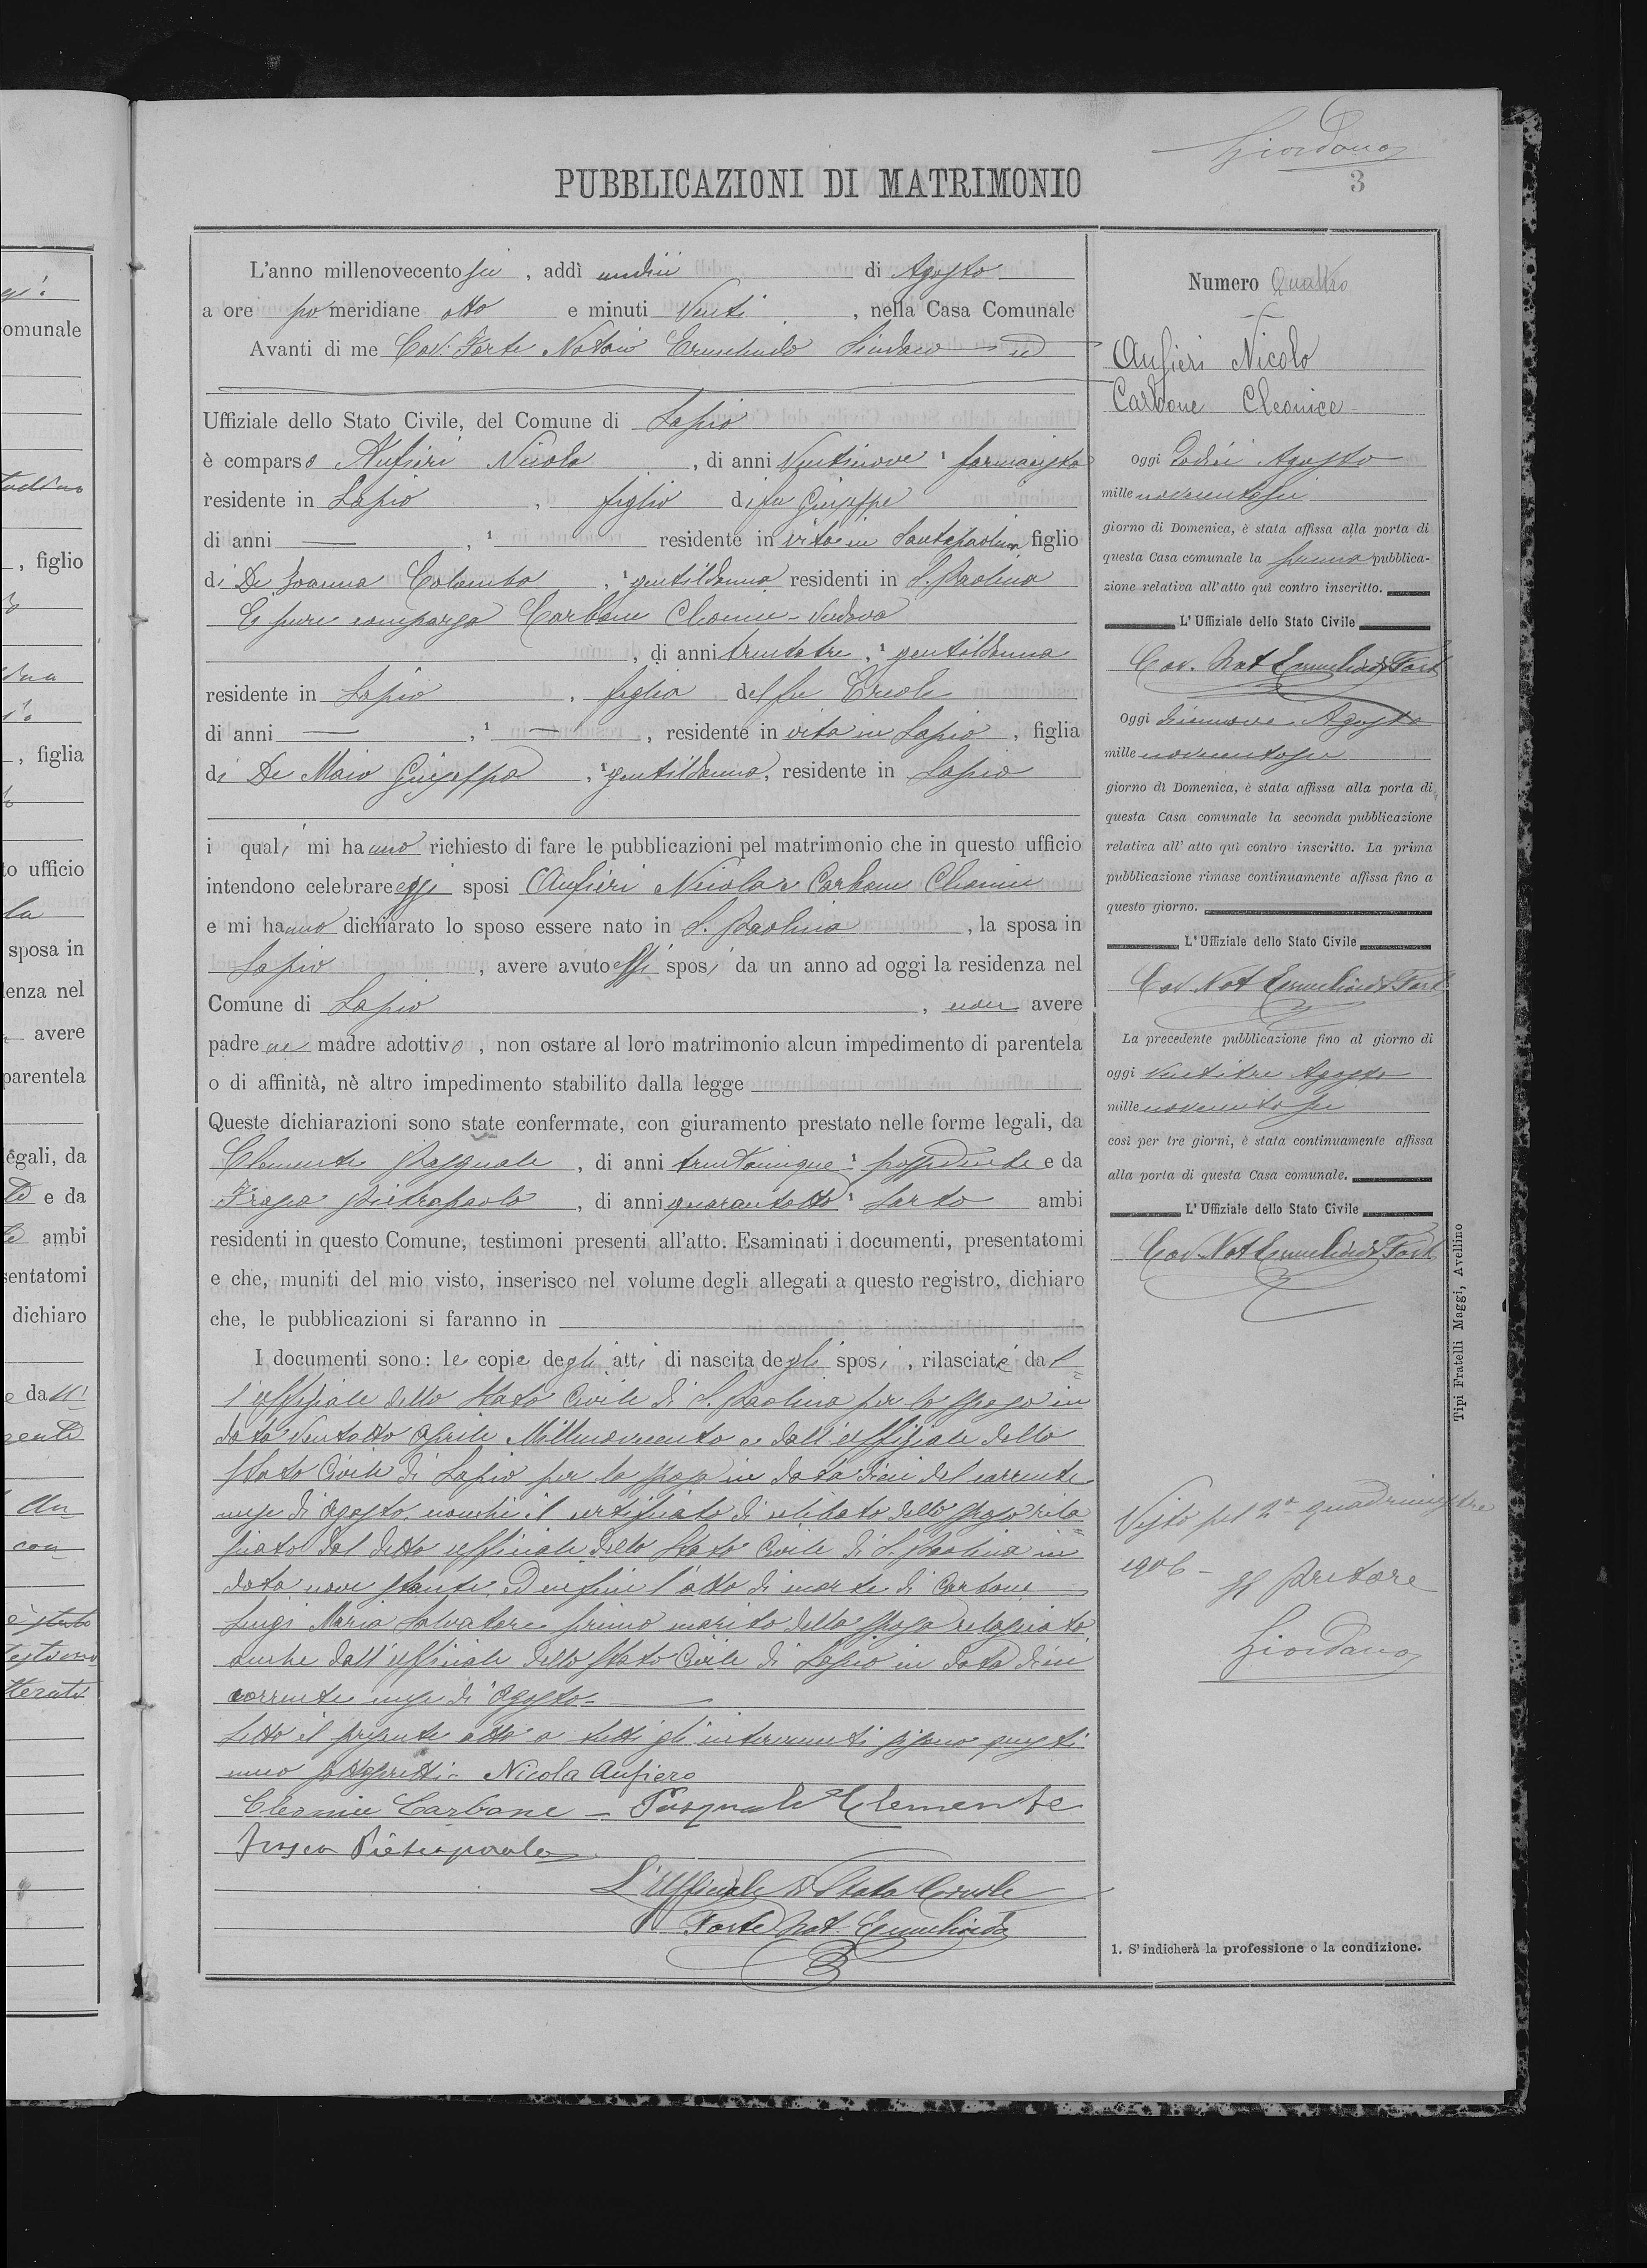 Giordano
3
PUBBLICAZIONI DI MATRIMONIO
L'anno millenovecento sei, addì undici di Agosto
a ore po meridiane otto e minuti Venti, nella Casa Comunale
Avanti di me Cav. Forte Notaio Ermelindo Sindaco ed
Uffiziale dello Stato Civile, del Comune di Lapio
è comparso Aufieri Nicola, di anni Ventinove, 1 farmacista
residente in Lapio, figlio di fu Giuseppe
di anni —, 1 residente in vita in Santapaolina, figlio
di De Joanna Colomba, 1 gentildonna residenti in S. Paolina
E pure comparsa Carbone Cleonice - Vedova
, di anni trentatre, 1 gentildonna
residente in Lapio, figlia del fu Ercole
di anni —, 1 —, residente in vita in Lapio, figlia
di De Maio Giuseppa, 1 gentildonna, residente in Lapio
i quali mi hanno richiesto di fare le pubblicazioni pel matrimonio che in questo ufficio
intendono celebrare essi sposi Aufieri Nicola e Carbone Cleonice
e mi hanno dichiarato lo sposo essere nato in S. Paolina, la sposa in
Lapio, avere avuto essi sposi da un anno ad oggi la residenza nel
Comune di Lapio, non avere
padre ne madre adottivo, non ostare al loro matrimonio alcun impedimento di parentela
o di affinità, nè altro impedimento stabilito dalla legge
Queste dichiarazioni sono state confermate, con giuramento prestato nelle forme legali, da
Clemente Pasquale, di anni trentacinque 1 possidente e da
Frasca Pietropaolo, di anni quarantotto 1 sarto ambi
residenti in questo Comune, testimoni presenti all'atto. Esaminati i documenti, presentatomi
e che, muniti del mio visto, inserisco nel volume degli allegati a questo registro, dichiaro
che, le pubblicazioni si faranno in
I documenti sono: le copie degli atti di nascita degli sposi, rilasciate dal
l'uffiziale dello Stato Civile di S. Paolina per lo sposo in
data Ventotto Aprile Millenovecento e dall'uffiziale dello
Stato Civile di Lapio per la sposa in data dieci del corrente
mese di Agosto, nonchè il certificato di celibato dello sposo rila
sciato dal detto ufficiale dello Stato Civile di S. Paolina in
data nove stante, ed infine l'atto di morte di Carbone
Luigi Maria Salvatore primo marito della sposa rilasciato
anche dall'ufficiale dello Stato Civile di Lapio in data dieci
corrente mese di Agosto.
Letto il presente atto a tutti gli intervenuti si sono questi
meco sottoscritti. Nicola Aufiero
Cleonice Carbone - Pasquale Clemente
Frasca Pietropaolo
L'Ufficiale di Stato Civile
Forte Not Ermelindo
Numero Quattro
Aufieri Nicola
Carbone Cleonice
Oggi Dodici Agosto
mille novecentosei
giorno di Domenica, è stata affissa alla porta di
questa Casa comunale la prima pubblica-
zione relativa all'atto quì contro inscritto.
L'Uffiziale dello Stato Civile
Cav. Not Ermelindo Forte
Oggi diciannove Agosto
mille novecentosei
giorno di Domenica, è stata affissa alla porta di
questa Casa comunale la seconda pubblicazione
relativa all'atto quì contro inscritto. La prima
pubblicazione rimase continuamente affissa fino a
questo giorno.
L'Uffiziale dello Stato Civile
Cav Not Ermelindo Forte
La precedente pubblicazione fino al giorno di
oggi Ventitre Agosto
mille novecento sei
così per tre giorni, è stata continuamente affissa
alla porta di questa Casa comunale.
L'Uffiziale dello Stato Civile
Cav. Not Ermelindo Forte
Visto pel 2º quadrimestre
1906 - Il Pretore
Giordano
1. S'indicherà la professione o la condizione.
Tipi Fratelli Maggi, Avellino
omunale
, figlio
, figlia
to ufficio
sposa in
lenza nel
avere
parentela
egali, da
e da
ambi
sentatomi
dichiaro
e dall'